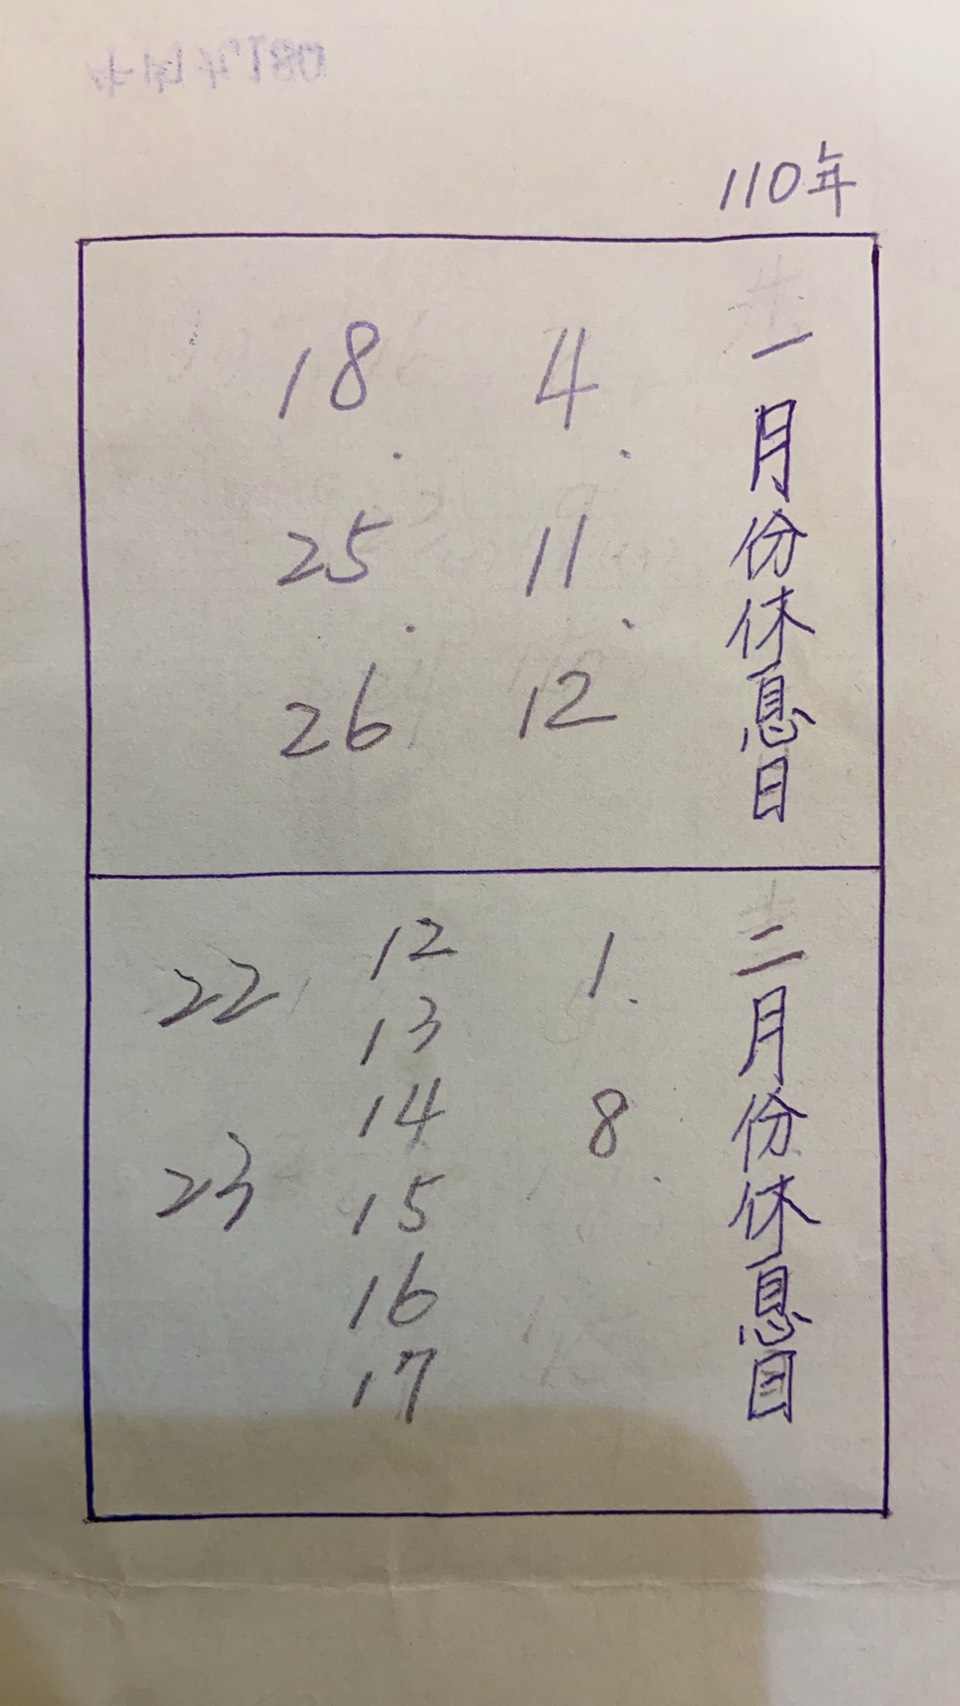 110年
一月份休息日
4
11
12
18
25
26
二月份休息日
1
8
12
13
14
15
16
17
22
23